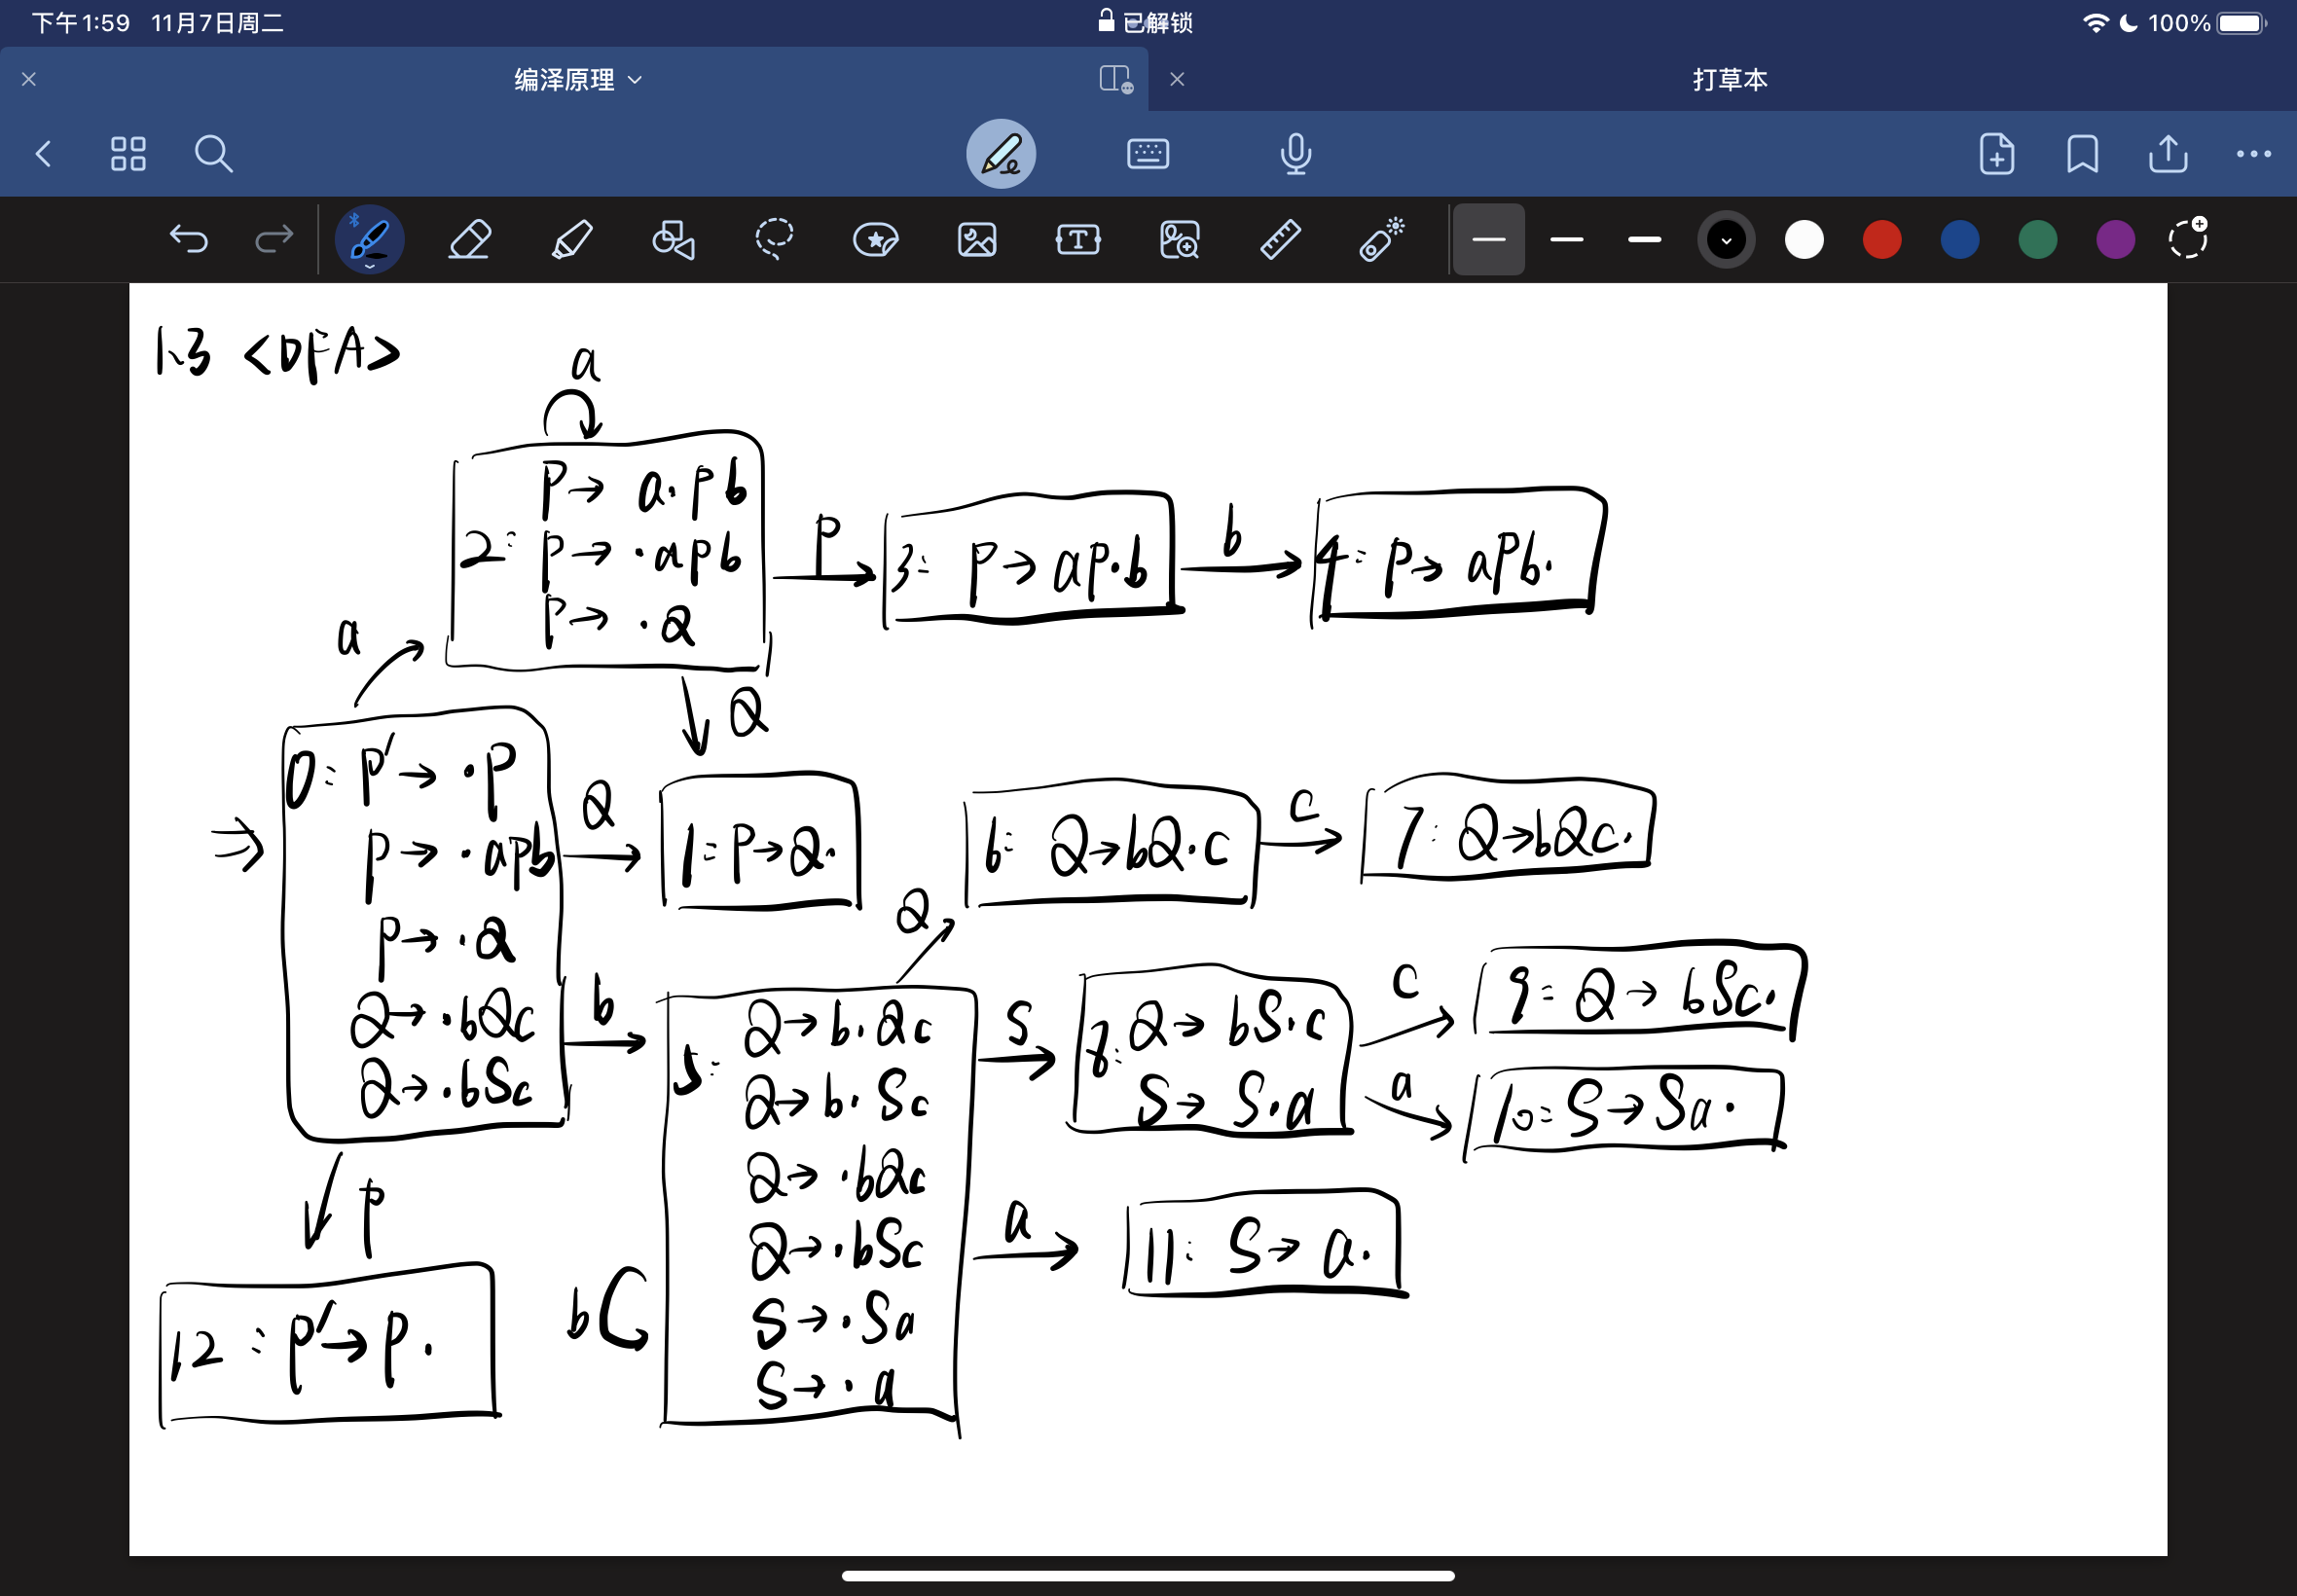 下午1:59 11月7日周二
已解锁
100%
编泽原理
打草本
1.3 <DFA>
a
2: P→ a·Pb
P→ ·aPb
P→ ·Q
P
3: P→aP·b
b
4: P→ aPb·
a
Q
0: P'→ ·P
P→ ·aPb
P→ ·Q
Q→ ·bQc
Q→ ·bSc
Q
1: P→Q·
6: Q→bQ·c
c
7: Q→bQc·
Q
b
5: Q→b·Qc
Q→b·Sc
Q→ ·bQc
Q→ ·bSc
S→ ·Sa
S→ ·a
S
8: Q→ bS·c
S→ S·a
c
9: Q→ bSc·
a
10: S→Sa·
a
11: S→ a·
P
12: P'→P·